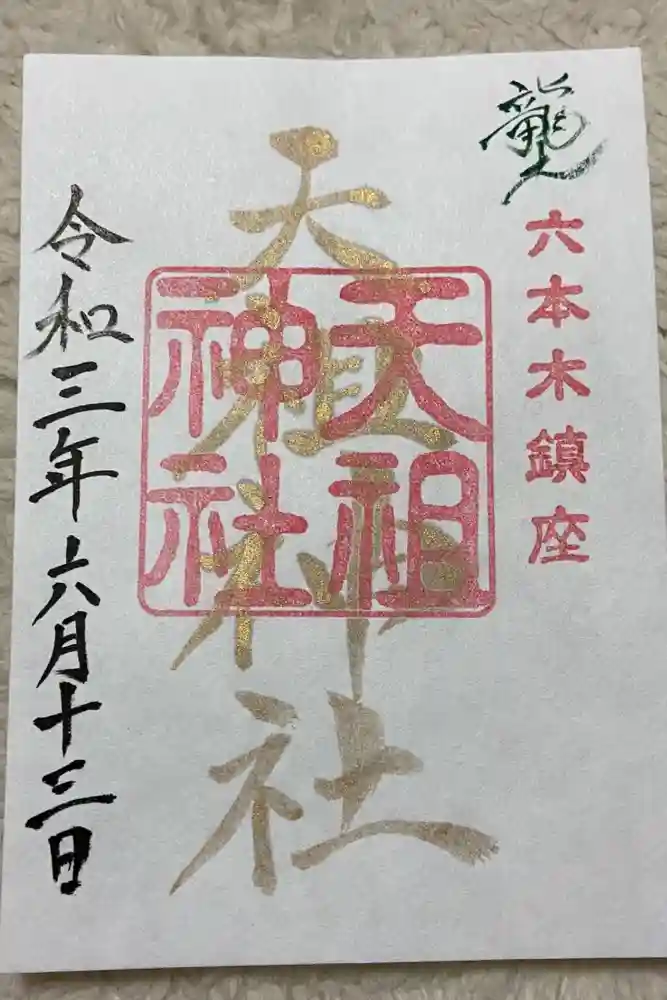 龍土
六本木鎮座
天祖神社
天祖
神社
令和三年六月十三日